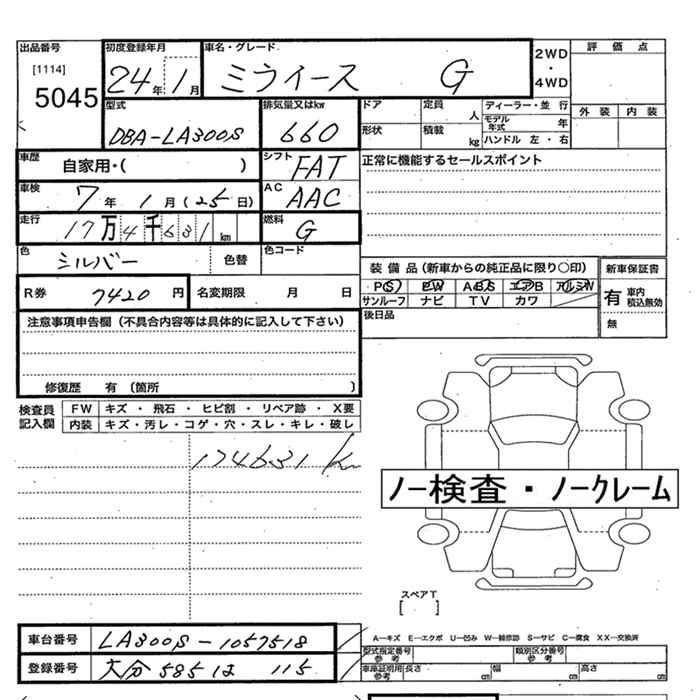 出品番号
[1114]
5045
初度登録年月
24年 1月
車名・グレード
ミライース G
2WD
・
4WD
評価点
外装 内装
型式
DBA-LA300S
排気量又はkw
660
ドア
定員
人
ディーラー・並行
モデル年式
年
形状
積載
kg
ハンドル 左・右
車歴
自家用・( )
シフト
FAT
正常に機能するセールスポイント
車検
7年 1月(25日)
AC
AAC
走行
17万4千631km
燃料
G
色
シルバー
色替
色コード
装備品(新車からの純正品に限り○印)
新車保証書
PS PW ABS エアB アルミW
サンルーフ ナビ TV カワ
有 車内積込無効
無
R券 7420円
名変期限 月 日
後日品
注意事項申告欄(不具合内容等は具体的に記入して下さい)
修復歴 有 (箇所 )
検査員記入欄
FW キズ・飛石・ヒビ割・リペア跡・X要
内装 キズ・汚レ・コゲ・穴・スレ・キレ・破レ
174631 km
ノー検査・ノークレーム
スペアT
[ ]
車台番号 LA300S-1057518
登録番号 大分 585 は 115
A―キズ E―エクボ U―凹み W―補修跡 S―サビ C―腐食 XX―交換済
型式指定番号
参考
類別区分番号
参考
車庫証明用
参考
長さ cm 幅 cm 高さ cm